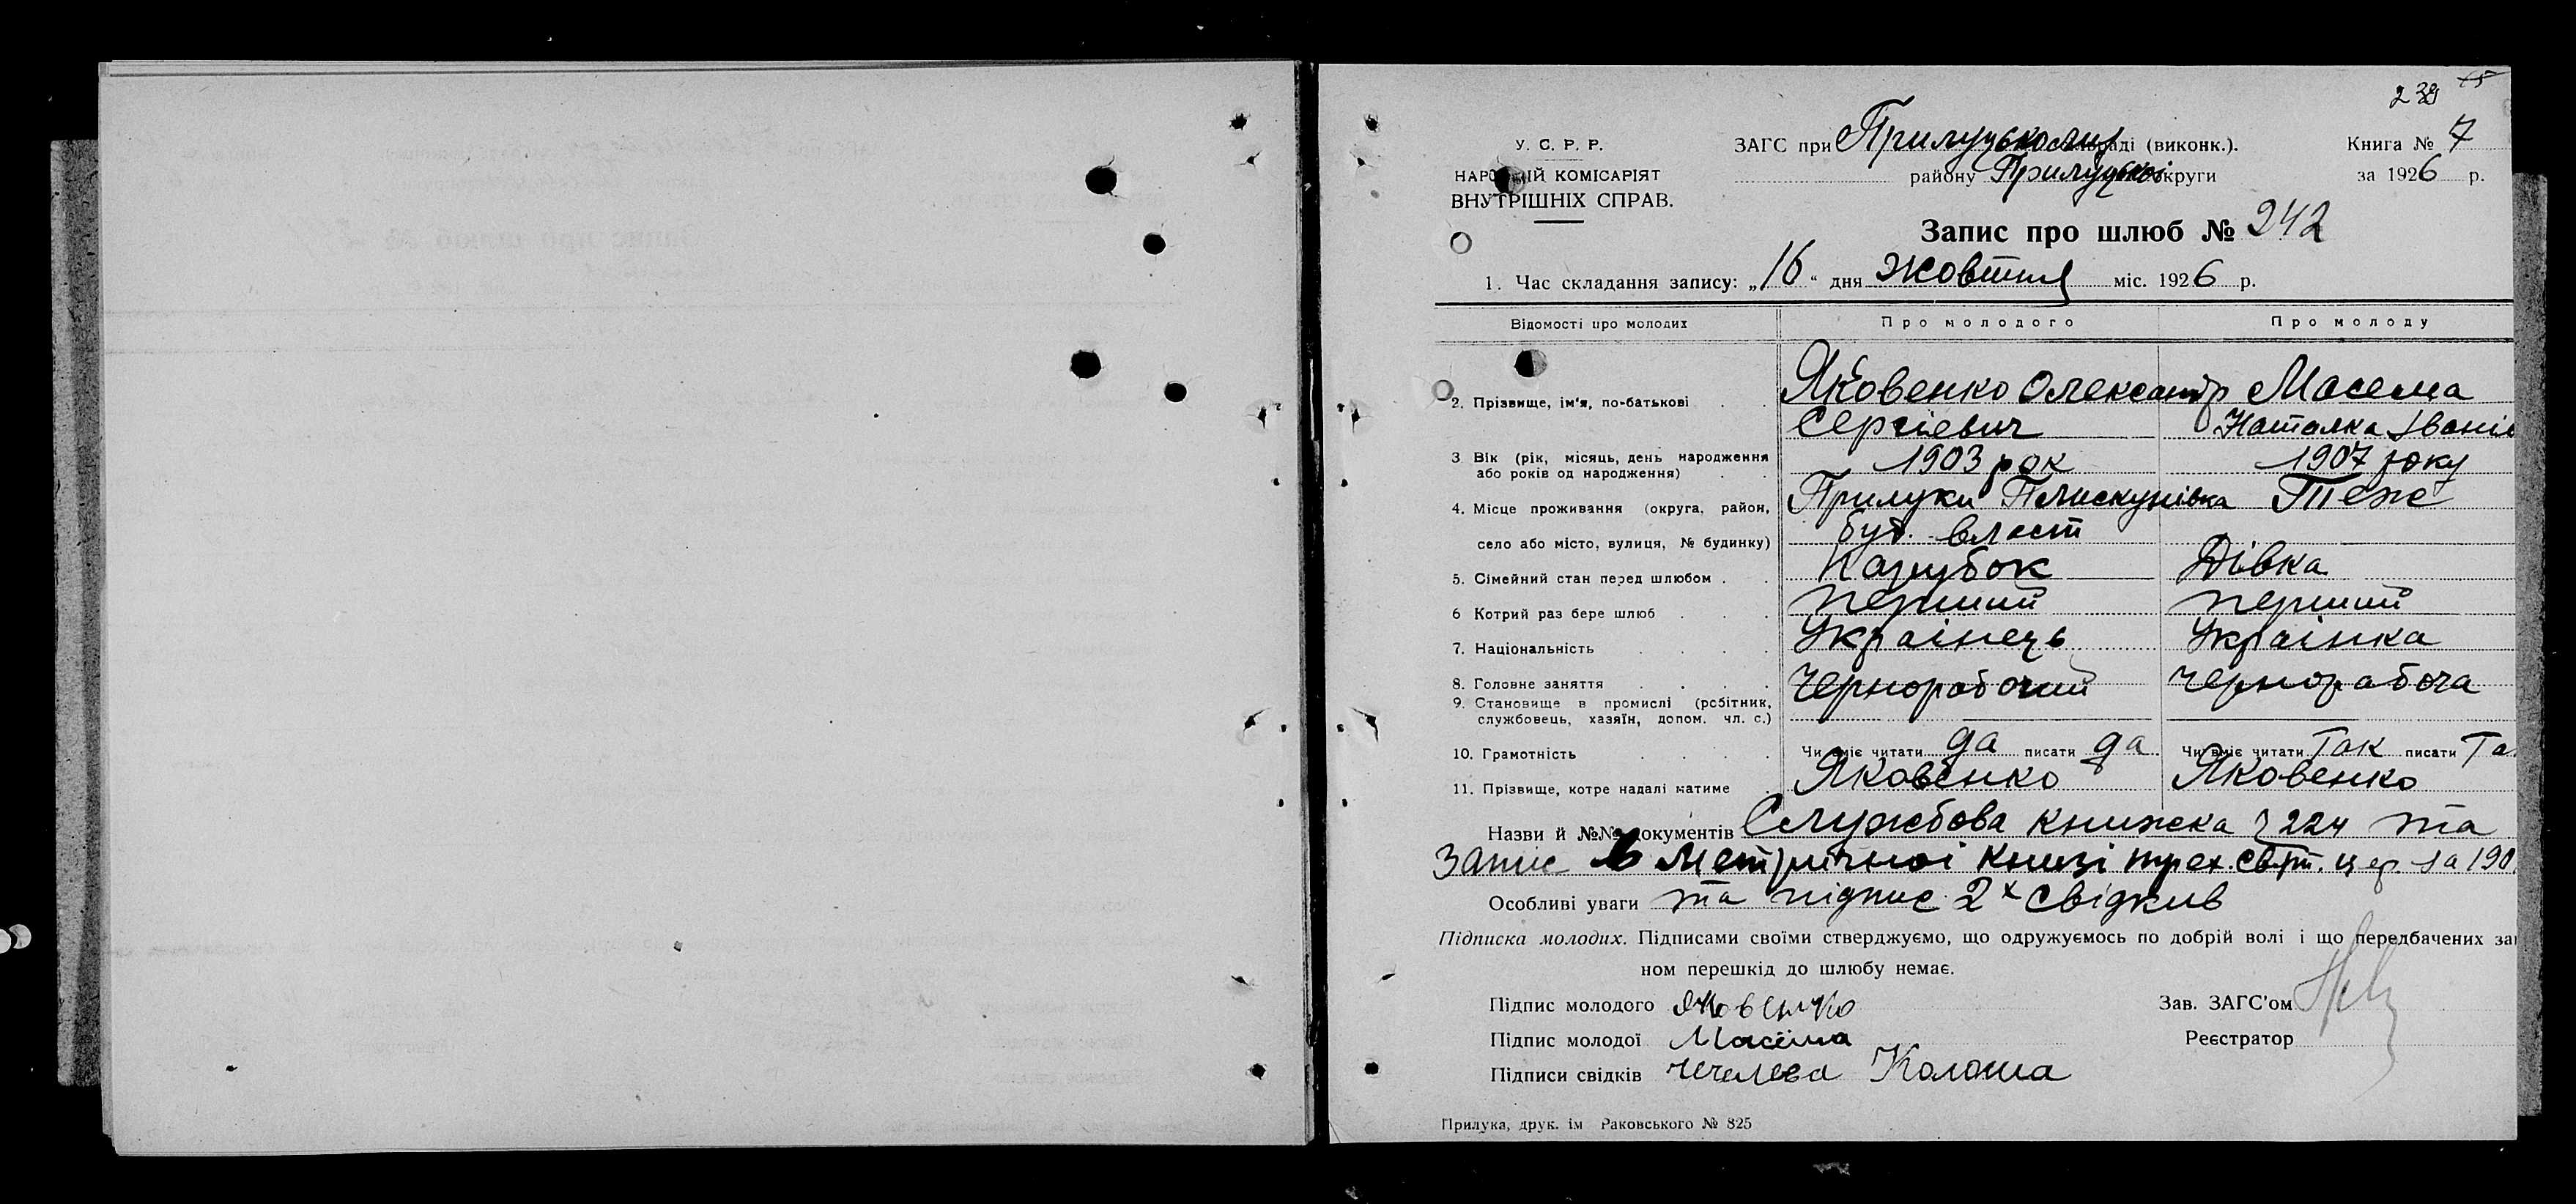 239 15
У. С. Р. Р. ЗАГС при Прилуцькому раді (виконк.). Книга № 7
НАРОДНІЙ КОМІСАРІЯТ району Прилуцької округи за 1926 р.
ВНУТРІШНІХ СПРАВ.
Запис про шлюб № 242
1. Час складання запису: „16“ дня Жовтня міс. 1926 р.
Відомості про молодих Про молодого Про молоду
2. Прізвище, ім'я, по-батькові Яковенко Олександр Масема
Сергієвич Наталка Іванів
3 Вік (рік, місяць, день народження або років од народження) 1903 рок 1907 року
4. Місце проживання (округа, район, Прилуки Плискунівка Теж
село або місто, вулиця, № будинку) буд. власт
5. Сімейний стан перед шлюбом Парубок Дівка
6 Котрий раз бере шлюб перший перший
7. Національність Українець Українка
8. Головне заняття Чернорабочий Чернорабоча
9. Становище в промислі (робітник,
службовець, хазяїн, допом. чл. с.)
10. Грамотність Чи вміє читати да писати да Чи вміє читати Так писати Та
11. Прізвище, котре надалі матиме Яковенко Яковенко
Назви й №№ документів Службова книжка 224 та
Запис в Метричної книзі трех. свят. цер. за 190
Особливі уваги та підпис 2х свідків
Підписка молодих. Підписами своїми стверджуємо, що одружуємось по добрій волі і що передбачених за
ном перешкід до шлюбу немає.
Підпис молодого Яковенко Зав. ЗАГС'ом
Підпис молодої Масема Реєстратор
Підписи свідків Чечелева Колоша
Прилука, друк. ім Раковського № 825